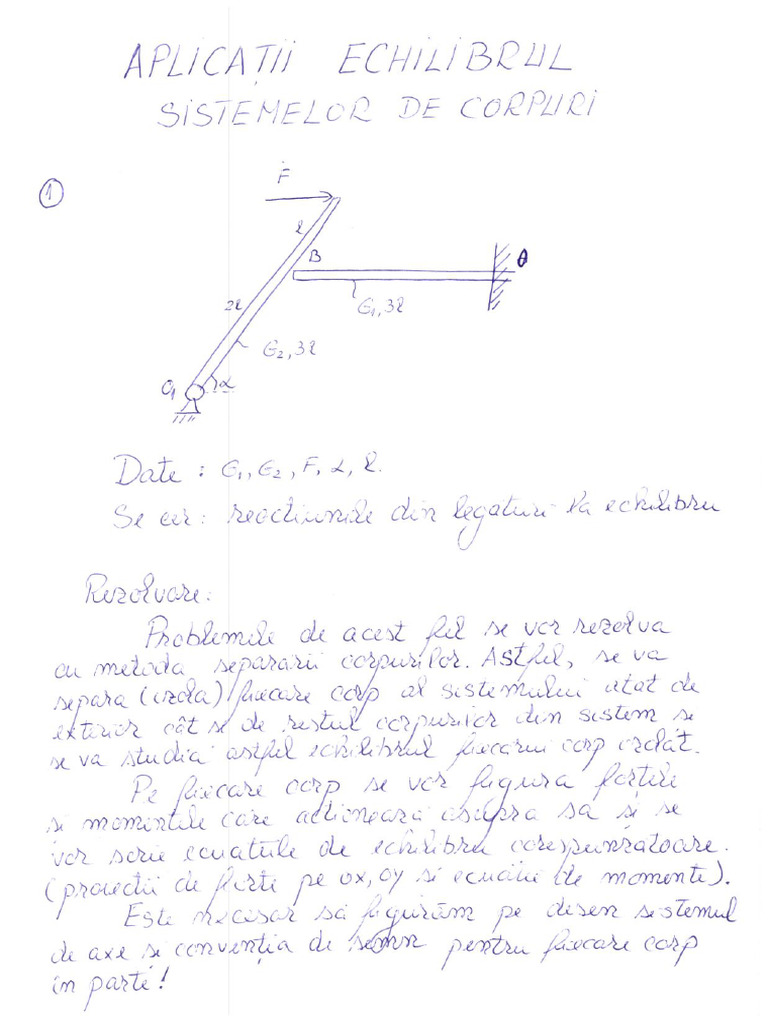 APLICAȚII ECHILIBRUL
SISTEMELOR DE CORPURI
1
F
l
B
A
2l
G1, 3l
G2, 3l
O1
α
Date : G1, G2, F, α, l.
Se cer: reacțiunile din legaturi la echilibru
Rezolvare:
Problemele de acest fel se vor rezolva
cu metoda separarii corpurilor. Astfel, se va
separa (izola) fiecare corp al sistemului atat de
exterior cât si de restul corpurilor din sistem si
se va studia astfel echilibrul fiecarui corp izolat.
Pe fiecare corp se vor figura fortele
si momentele care actioneaza asupra sa si se
vor scrie ecuatiile de echilibru corespunzatoare.
(proiectii de forte pe ox, oy si ecuatii de momente).
Este necesar să figurăm pe desen sistemul
de axe si convenția de semn pentru fiecare corp
in parte!